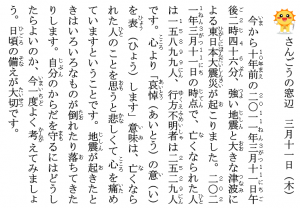 さんごうの窓辺　三月十一日（木）
今から十年前の二〇一一年三月十一日午
後二時四十六分、強い地震と大きな津波に
よる東日本大震災が起こりました。二〇二
一年三月十一日の時点で、亡くなられた人
は一五八九九人、行方不明者は二五二九人
です。心より「哀悼（あいとう）の意（い）
を表（ひょう）します」意味は、亡くなら
れた人のことを思うと悲しくて心を痛め
ていますということです。地震が起きたと
きはいろいろなものが倒れたり落ちてきた
りします。自分のからだを守るにはどうし
たらよいのか、今一度よく考えてみましょ
う。日頃の備えが大切です。